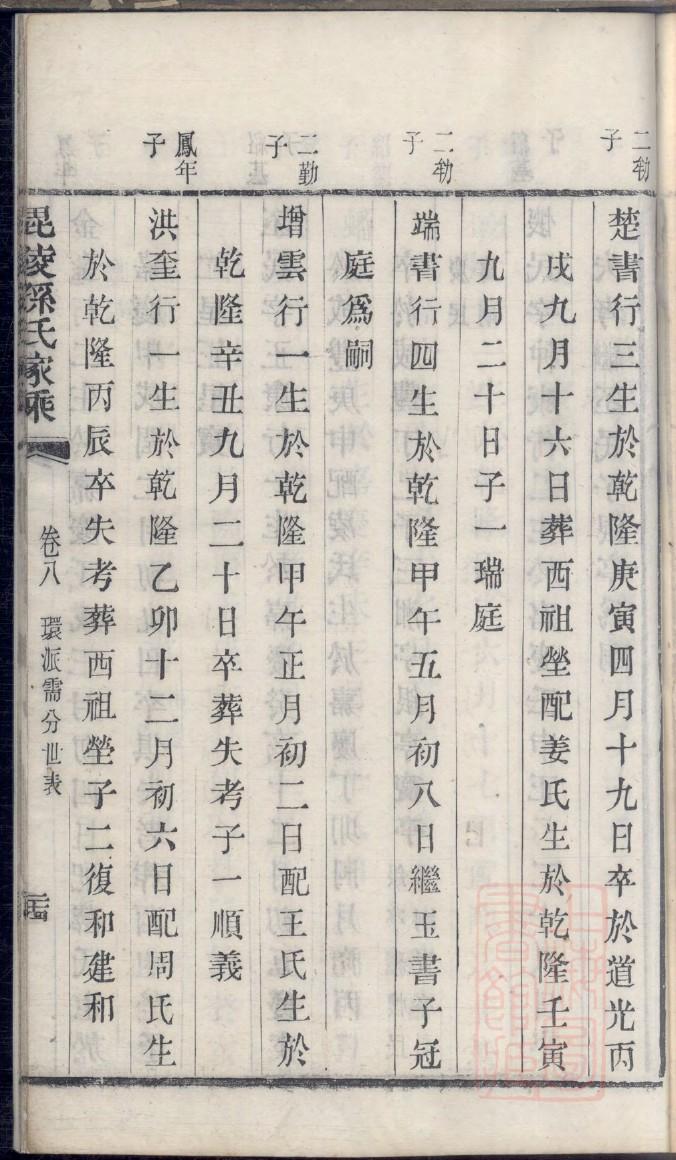 二勑子
楚書行三生於乾隆庚寅四月十九日卒於道光丙
戌九月十六日葬西祖塋配姜氏生於乾隆壬寅
九月二十日子一瑞庭
二勑子
端書行四生於乾隆甲午五月初八日繼玉書子冠
庭爲嗣
二勤子
增雲行一生於乾隆甲午正月初二日配王氏生於
乾隆辛丑九月二十日卒葬失考子一順義
鳳年子
洪奎行一生於乾隆乙卯十二月初六日配周氏生
於乾隆丙辰卒失考葬西祖塋子二復和建和
毘陵孫氏家乘
卷八 環派需分世表